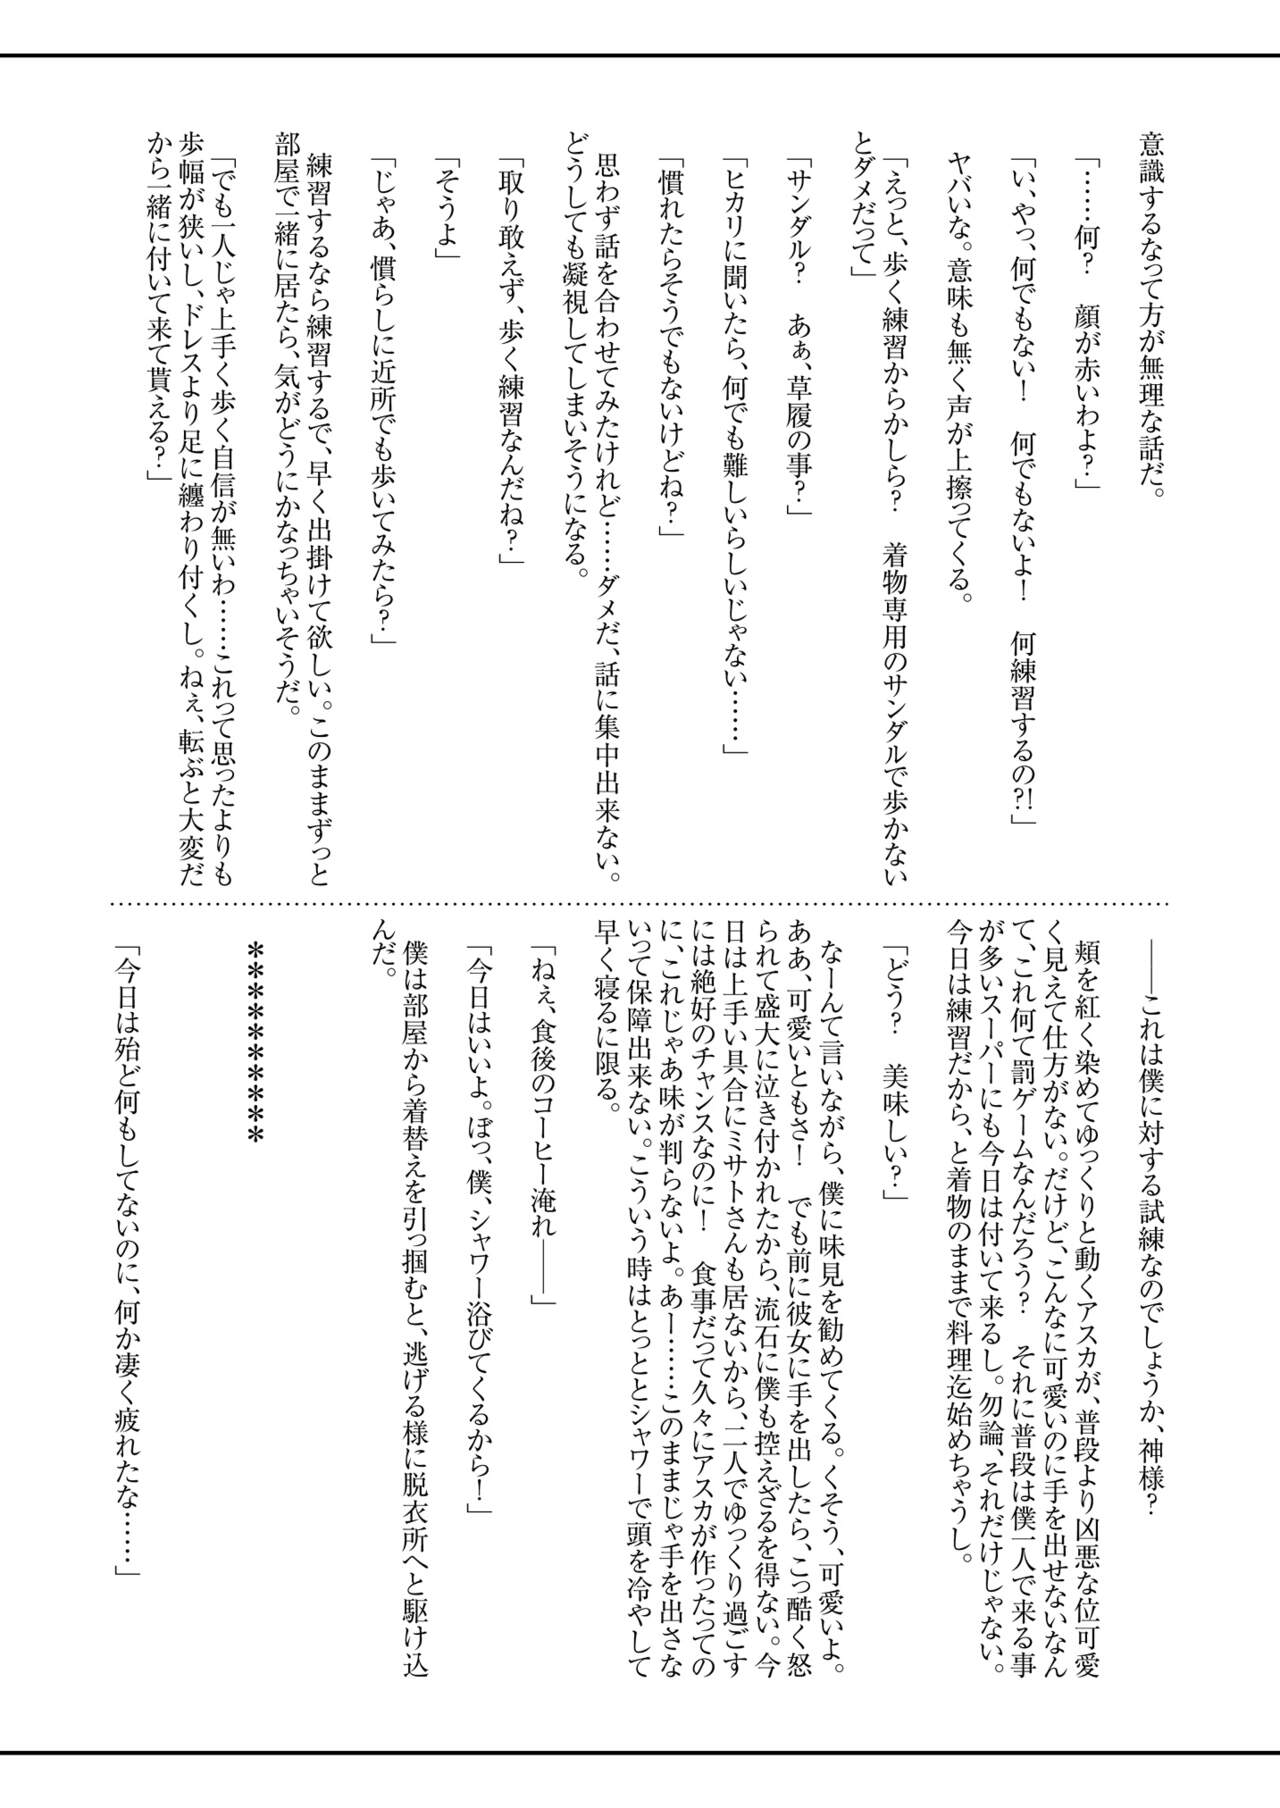 意識するなって方が無理な話だ。
「……何?　顔が赤いわよ?」
「い、やっ、何でもない!　何でもないよ!　何練習するの?!」
ヤバいな。意味も無く声が上擦ってくる。
「えっと、歩く練習からかしら?　着物専用のサンダルで歩かない
とダメだって」
「サンダル?　あぁ、草履の事?」
「ヒカリに聞いたら、何でも難しいらしいじゃない……」
「慣れたらそうでもないけどね?」
思わず話を合わせてみたけれど……ダメだ、話に集中出来ない。
どうしても凝視してしまいそうになる。
「取り敢えず、歩く練習なんだね?」
「そうよ」
「じゃあ、慣らしに近所でも歩いてみたら?」
練習するなら練習するで、早く出掛けて欲しい。このままずっと
部屋で一緒に居たら、気がどうにかなっちゃいそうだ。
「でも一人じゃ上手く歩く自信が無いわ……これって思ったよりも
歩幅が狭いし、ドレスより足に纏わり付くし。ねぇ、転ぶと大変だ
から一緒に付いて来て貰える?」
――これは僕に対する試練なのでしょうか、神様?
頬を紅く染めてゆっくりと動くアスカが、普段より凶悪な位可愛
く見えて仕方がない。だけど、こんなに可愛いのに手を出せないなん
て、これ何て罰ゲームなんだろう?　それに普段は僕一人で来る事
が多いスーパーにも今日は付いて来るし。勿論、それだけじゃない。
今日は練習だから、と着物のままで料理迄始めちゃうし。
「どう?　美味しい?」
なーんて言いながら、僕に味見を勧めてくる。くそう、可愛いよ。
ああ、可愛いともさ!　でも前に彼女に手を出したら、こっ酷く怒
られて盛大に泣き付かれたから、流石に僕も控えざるを得ない。今
日は上手い具合にミサトさんも居ないから、二人でゆっくり過ごす
には絶好のチャンスなのに!　食事だって久々にアスカが作ったっての
に、これじゃあ味が判らないよ。あー……このままじゃ手を出さな
いって保障出来ない。こういう時はとっととシャワーで頭を冷やして
早く寝るに限る。
「ねぇ、食後のコーヒー淹れ――」
「今日はいいよ。ぼっ、僕、シャワー浴びてくるから!」
僕は部屋から着替えを引っ掴むと、逃げる様に脱衣所へと駆け込
んだ。
＊＊＊＊＊＊＊＊＊＊
「今日は殆ど何もしてないのに、何か凄く疲れたな……」